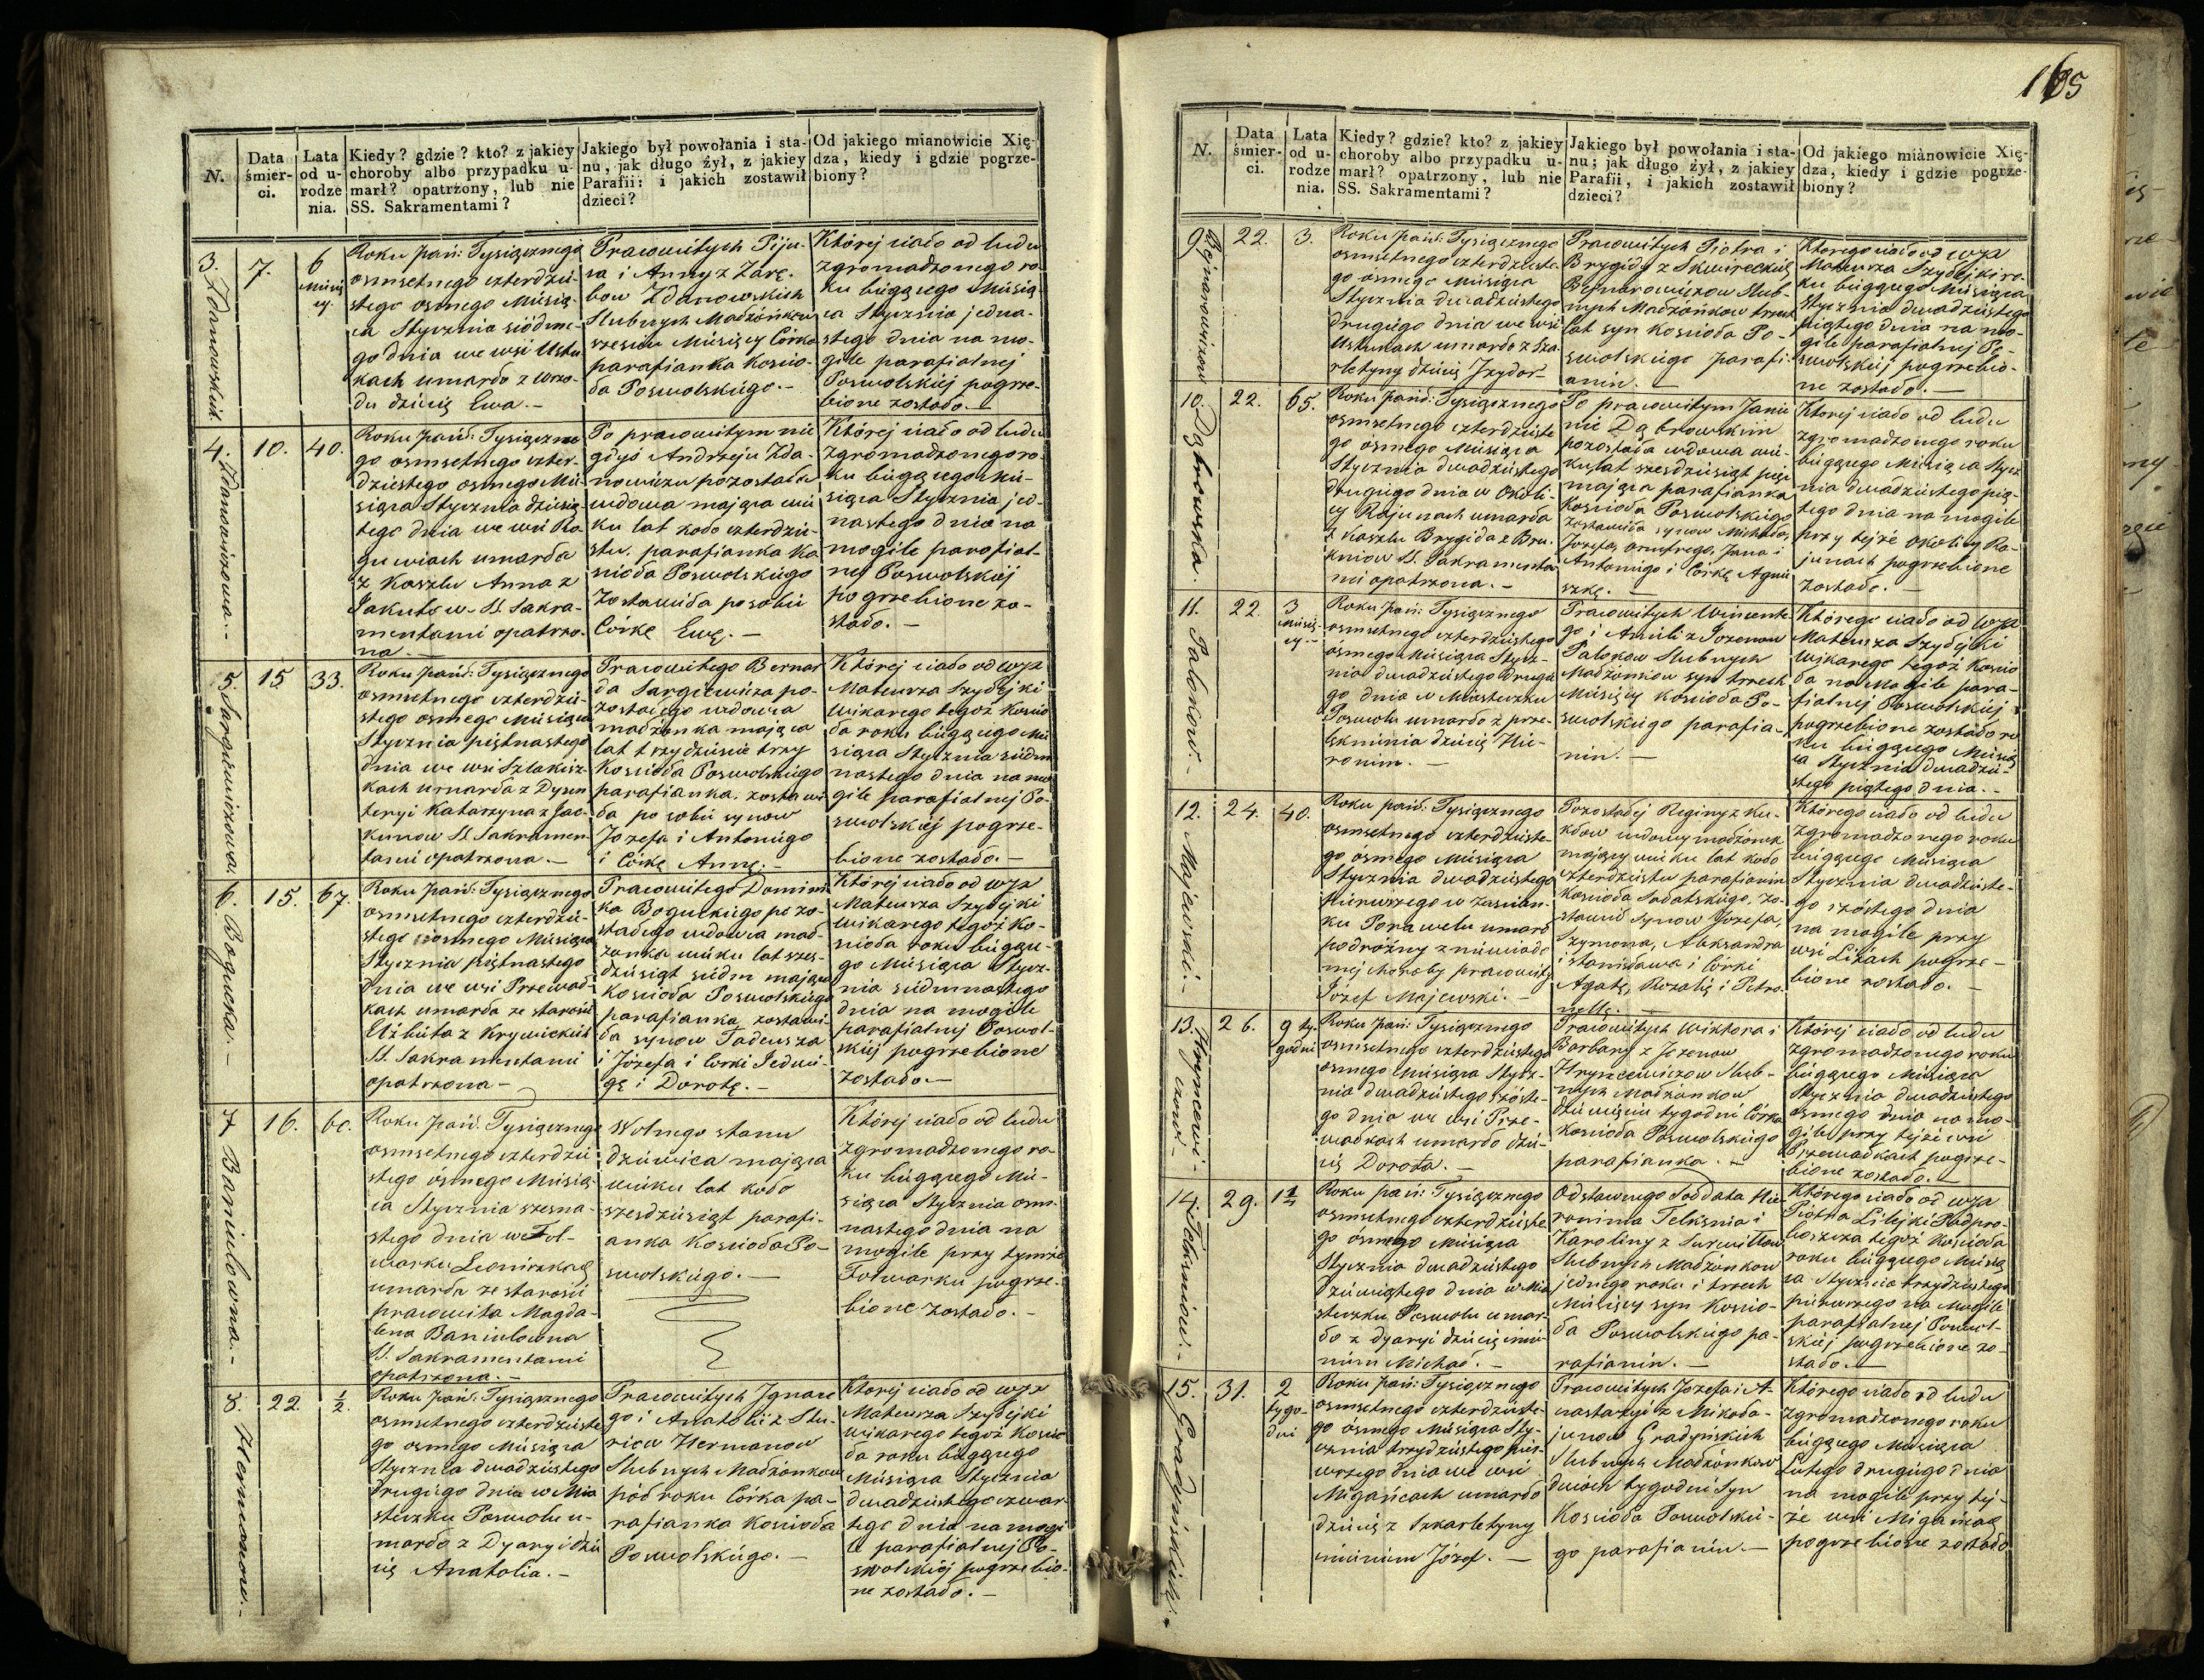 165
N.
Data śmierci.
Lata od urodzenia.
Kiedy? gdzie? kto? z jakiey
choroby albo przypadku u-
marł? opatrzony, lub nie
SS. Sakramentami?
Jakiego był powołania i sta-
nu, jak długo żył, z jakiey
Parafii: i jakich zostawił
dzieci?
Od jakiego mianowicie Xię-
dza, kiedy i gdzie pogrze-
biony?
3. Zdanowskich.
7.
6
Miesię
cy.
Roku pań: Tysiącznego
osmsetnego czterdzie-
stego osmego Miesią-
ca Stycznia siódme-
go dnia we wsi Ustu
kach umarło z wrzo-
du dziécię Ewa. –
Pracowitych Piju-
sa i Anny z Zarę-
bow Zdanowskich
Slubnych Małżonkow
szesciu Miesięcy Córka
parafianka Koscio-
ła Poswolskiégo. –
Której ciało od ludu
zgromadzonego ro-
ku biégącego Miesią-
ca Stycznia jedna-
stego dnia na mo-
gile parafialnéj
Poswolskiéj pogrze-
bione zostało. –
4. Zdanowiczowa. –
10.
40.
Roku pańs: Tysiączne
go osmsetnego czter-
dziestego osmego Mie-
siąca Stycznia dziesią-
tego dnia we wsi Ra
guwiach umarła
z Kaszlu Anna z
Jakutow SS. Sakra-
mentami opatrzo-
na. –
Po pracowitym nie
gdyś Andrzeju Zda-
nowiczu pozostała
wdowa mająca wie
ku lat koło czterdzie-
stu. parafianka Ko
scioła Poswolskiégo
Zostawiła po sobie
Córkę Ewę. –
Której ciało od ludu
zgromadzonego ro-
ku biégącego Mie-
siąca Stycznia jed-
nastego dnia na
mogile parafial-
néj Poswolskiéj
pogrzebione zo-
stało. –
5. Sargiewiczowa.
15
33.
Roku pańs: Tysiącznego
osmsetnego czterdzie-
stego osmego Miesiąca
Stycznia piętnastego
dnia we wsi Szlakisz-
kach umarła z Dysen
teryi Katarzyna z Jac-
kunow SS. Sakramen
tami opatrzona. –
Pracowitego Bernar
da Sargiewicza po-
zostałego wdowca
małżonka mająca
lat trzydzieście trzy
Kościoła Poswolskiégo
parafianka. zostawi
ła po sobie synow
Jozefa i Antoniégo
i Córkę Annę. –
Której ciało od wjx
Mateusza Szydejki
wikarego tegoż Koscio
ła roku biégącego Mie
siąca Stycznia siédm
nastego dnia na mo
gile parafialnéj Po-
swolskiéj pogrze-
bione zostało. –
6. Bogucka. –
15.
67.
Roku pańs: Tysiącznego
osmsetnego czterdzie-
stego osmego Miesiąca
Stycznia piętnastego
dnia we wsi Przewad-
kach umarła ze starości
Elżbiéta z Krywickich
SS. Sakramentami
opatrzona –
Pracowitego Domini
ka Boguckiégo pozo-
stałego wdowca mał-
żonka wieku lat szes-
dziesiąt siédm mająca
Kościoła Poswolskiégo
parafianka, zostawi-
ła synow Tadeusza
i Józefa i Corki Jedwi-
gę i Dorotę. –
Której ciało od wjx
Mateusza Szydejki
wikarego tegoż Ko-
scioła roku biégące-
go Miesiąca Stycz-
nia siédmnastego
dnia na mogile
parafialnéj Poswol-
skiéj pogrzebione
zostało. –
7 Baniulowna. –
16.
60.
Roku pańs. Tysiącznego
osmsetnego czterdzie
stego ósmego Miesią-
ca Stycznia szesna-
stego dnia w Fol-
warku Leoniszkach
umarła ze starości
pracowita Magda-
lena Baniulowna
SS. Sakramentami
opatrzona. –
Wolnego stanu
dziéwica mająca
wieku lat koło
szesdziesiąt parafi-
anka Kościoła Po-
swolskiégo. –
Której ciało od ludu
zgromadzonego ro-
ku biégącego Mie-
siąca Stycznia osm-
nastego dnia na
mogile przy tymże
Folwarku pogrze-
bione zostało. –
8. Hermanow. –
22.
1/2.
Roku pańs: Tysiącznego
osmsetnego czterdzieste
go osmego Miesiąca
Stycznia dwadziestego
drugiégo dnia w Mia
steczku Poswolu u-
marło z Dyaryi dzie
cię Anatolia. –
Pracowitych Ignace
go i Anatolii z Stu-
ricw Hermanow
Slubnych Małżonkow
pół roku Córka pa-
rafianka Koscioła
Poswolskiégo. –
Której ciało od wjx
Mateusza Szydejki
wikarego tegoż Koscio
ła roku biégącego
Miesiąca Stycznia
dwadziestego czwar
tego dnia na mogi
le parafialnéj Po-
swolskiéj pogrzebio-
ne zostało. –
N.
Data śmierci.
Lata od urodzenia.
Kiedy? gdzie? kto? z jakiey
choroby albo przypadku u-
marł? opatrzony, lub nie
SS. Sakramentami?
Jakiego był powołania i sta-
nu; jak długo żył, z jakiey
Parafii, i jakich zostawił
dzieci?
Od jakiego mianowicie Xię-
dza, kiedy i gdzie pogrze-
biony?
9. Bejnarowiczow
22.
3.
Roku pańs: Tysiącznego
osmsetnego czterdzieste-
go ósmego Miesiąca
Stycznia dwadziestego
drugiégo dnia we wsi
Ustukach umarło z Szka
rletyny dziécię Izydor
Pracowitych Piotra i
Brygidy z Skwireckich
Bejnarowiczow Slub-
nych Małżonkow trzech
lat syn Kościoła Po-
swolskiégo parafi-
anin. –
Ktorego ciało od wjx
Mateusza Szydejki ro-
ku biégącego Miesiąca
Stycznia dwadziestego
piątego dnia na mo-
gile parafialnéj Po-
swolskiéj pogrzebio-
ne zostało. –
10. Dąbrowska.
22.
65.
Roku pańs: Tysiącznego
osmsetnego czterdzieste
go ósmego Miesiąca
Stycznia dwadziestego
drugiégo dnia w Okoli-
cy Rajunach umarła
z Kaszlu Brygida z Bru-
kniow SS. Sakramenta-
mi opatrzona. –
Po pracowitym Janie
nie Dąbrowskim
pozostała wdowa wie-
ku lat szesdziesiąt pięć
mająca parafianka
Kościoła Poswolskiégo
Zostawiła synow Michała,
Jozefa, Onufrego, Jana i
Antoniégo i Córkę Agnie
szkę. –
Ktorej ciało od ludu
zgromadzonego roku
biégącego Miesiąca Stycz
nia dwadziestego pią-
tego dnia na mogile
przy tejże Okolicy Ra-
junach pogrzebione
zostało. –
11. Palokow. –
22.
3
Miesię-
cy. –
Roku pań: Tysiącznego
osmsetnego czterdziestego
ósmego Miesiąca Stycz-
nia dwadziestego drugie
go dnia w Miasteczku
Poswolu umarło z prze-
lęknienia dziécię Hie-
ronim. –
Pracowitych Wincente
go i Anieli z Jozonow
Palokow Slubnych
Małżonkow syn trzech
Miesięcy Kościoła Po-
swolskiégo parafia-
nin. –
Którego ciało od wjx
Mateusza Szydejki
Wikarego tegoż Koscio
ła na Mogile para-
fialnéj Poswolskiéj
pogrzebione zostało ro
ku biégącego Miesią
ca Stycznia dwadzie-
stego piątego dnia. –
12. Majewski. –
24.
40.
Roku pańs: Tysiącznego
osmsetnego czterdzieste-
go ósmego Miesiąca
Stycznia dwadziestego
piérwszego w Zascian-
ku Porawelu umarł
podróżny z niéwiado
méj choroby pracowity
Józef Majewski. –
Pozostałej Reginy z Ku-
kłow wdowy małżonek
mający wieku lat koło
czterdziestu parafianin
Kościoła Sałatskiégo, zo-
stawił Synow Jozefa,
Szymona, Aleksandra
i Stanisława i Córki
Agatę, Rozalię i Petro-
nellę. –
Którego ciało od ludu
zgromadzonego roku
biégącego Miesiąca
Stycznia dwadzieste-
go szóstego dnia
na mogile przy
wsi Liżach pogrze-
bione zostało. –
13. Hryncewi-
czow. –
26.
9 ty
godni
Roku pań: Tysiącznego
osmsetnego czterdziestego
osmego Miesiąca Stycz-
nia dwadziestego szóste-
go dnia we wsi Prze-
wadkach umarło dzie-
cię Dorota. –
Pracowitych Wiktora i
Barbary z Jozonow
Hryncewiczow Slub-
nych Małżonkow
dziéwięciu tygodni Córka
Kościoła Poswolskiégo
parafianka. –
Której ciało od ludu
zgromadzonego roku
biégącego Miesiąca
Stycznia dwadziestego
osmego dnia na mo-
gile przy tejże wsi
Przewadkach pogrze-
bione zostało. –
14. Telksniow. –
29.
1 1/4
Roku pań: Tysiącznego
osmsetnego czterdzieste
go ósmego Miesiąca
Stycznia dwadziestego
dziéwiątego dnia w Mia
steczku Poswolu umar-
ło z dyaryi dziécię imie-
niém Michał. –
Odstawnego Sołdata Hie-
ronima Telksnia i
Karoliny z Surwiłłow
Slubnych Małżonkow
jednego roku i trzech
Miesięcy syn Koscio-
ła Poswolskiégo pa-
rafianin. –
Którego ciało od wjx
Piotra Lilejki Podpro-
boszcza tegoż Kościoła
roku biégącego Miesią
ca Stycznia trzydziestego
piérwszego na Mogile
parafialnéj Poswol-
skiéj pogrzebione zo-
stało. –
15. Gradyńskich. –
31.
2
tygo-
dni
Roku pań: Tysiącznego
osmsetnego czterdzieste-
go ósmego Miesiąca Sty-
cznia trzydziestego piér-
wszego dnia we wsi
Migańcach umarło
dziécię z Szkarletyny
imieniem Józef. –
Pracowitych Jozefa i A-
nastazyi z Mikoła-
junow Gradyńskich
Slubnych Małżonkow
dwóch tygodni Syn
Kościoła Poswolskié-
go parafianin. –
Którego ciało od ludu
zgromadzonego roku
biégącego Miesiąca
Lutego drugiégo dnia
na mogile przy tej-
że wsi Migańcach
pogrzebione zostało